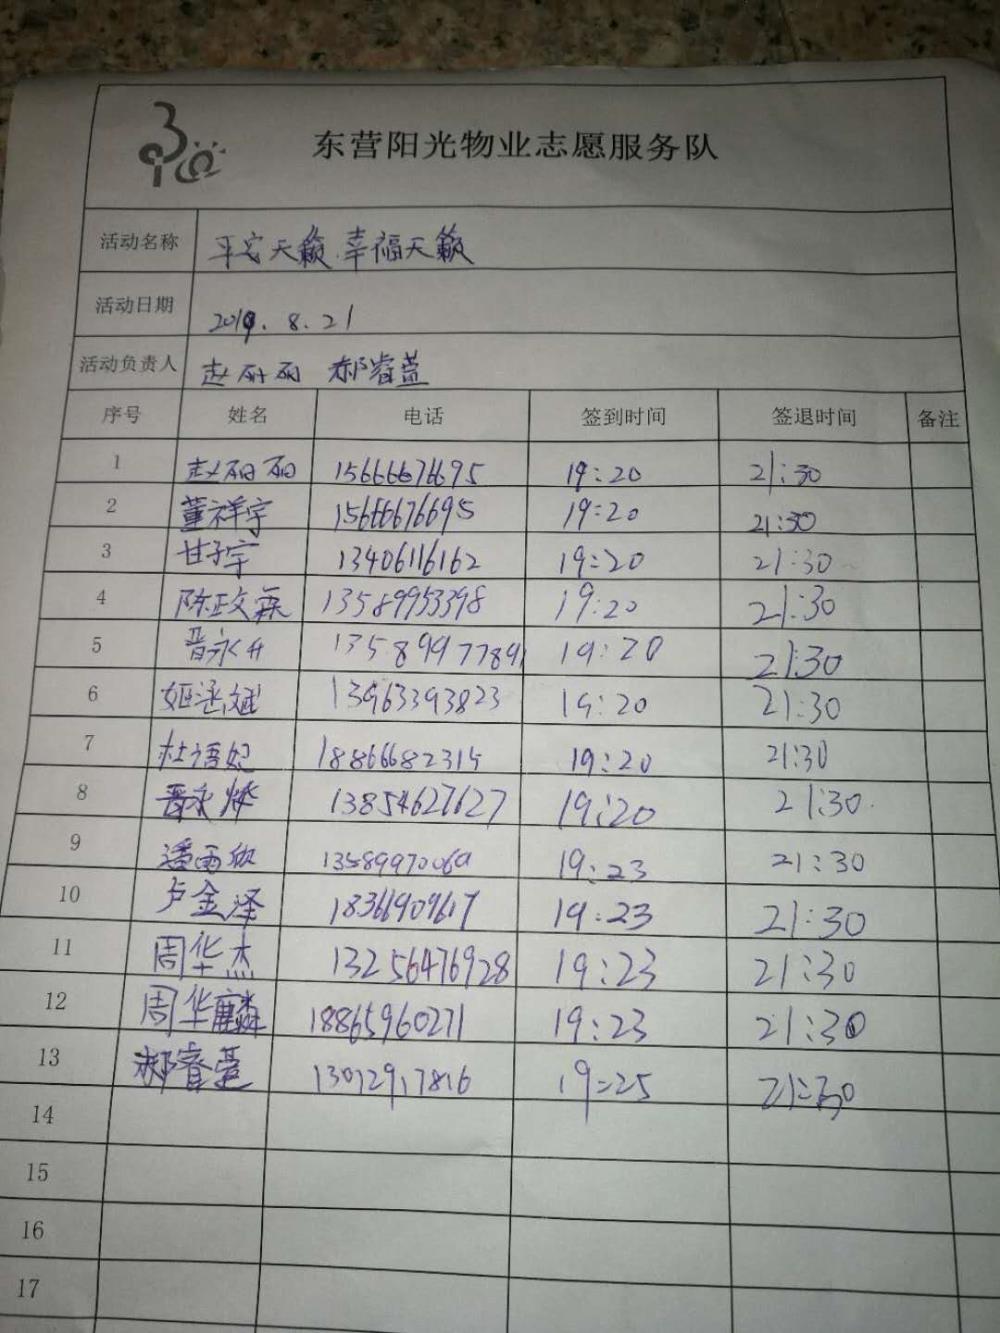 东营阳光物业志愿服务队
活动名称 平安天籁.幸福天籁
活动日期 2019.8.21
活动负责人 赵丽丽 郝睿萱
序号 姓名 电话 签到时间 签退时间 备注
1 赵丽丽 15666676695 19:20 21:30
2 董祥宇 15666676695 19:20 21:30
3 甘子宇 13406116162 19:20 21:30
4 陈政霖 13589953398 19:20 21:30
5 晋永升 13589977891 19:20 21:30
6 姬涵斌 13963393823 19:20 21:30
7 杜语妃 18866682315 19:20 21:30
8 晋永烨 13854627627 19:20 21:30
9 潘雨欣 13589970069 19:23 21:30
10 卢金泽 18366909617 19:23 21:30
11 周华杰 13256476928 19:23 21:30
12 周华麟 18865960271 19:23 21:30
13 郝睿萱 13012917816 19:25 21:30
14
15
16
17